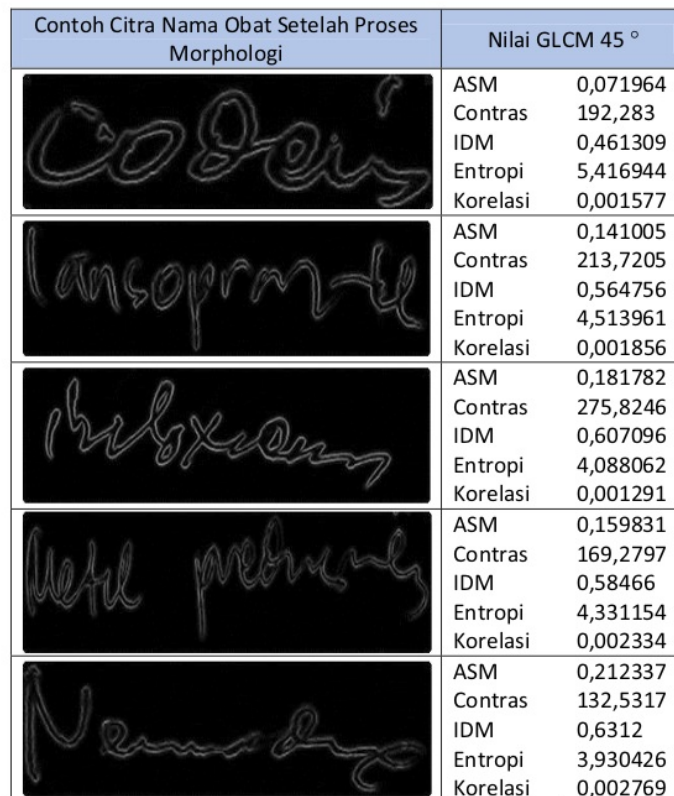 Contoh Citra Nama Obat Setelah Proses
Morphologi
Nilai GLCM 45 °
Codein
ASM 0,071964
Contras 192,283
IDM 0,461309
Entropi 5,416944
Korelasi 0,001577
ASM 0,141005
Contras 213,7205
IDM 0,564756
Entropi 4,513961
Korelasi 0,001856
ASM 0,181782
Contras 275,8246
IDM 0,607096
Entropi 4,088062
Korelasi 0,001291
Metil
ASM 0,159831
Contras 169,2797
IDM 0,58466
Entropi 4,331154
Korelasi 0,002334
ASM 0,212337
Contras 132,5317
IDM 0,6312
Entropi 3,930426
Korelasi 0,002769